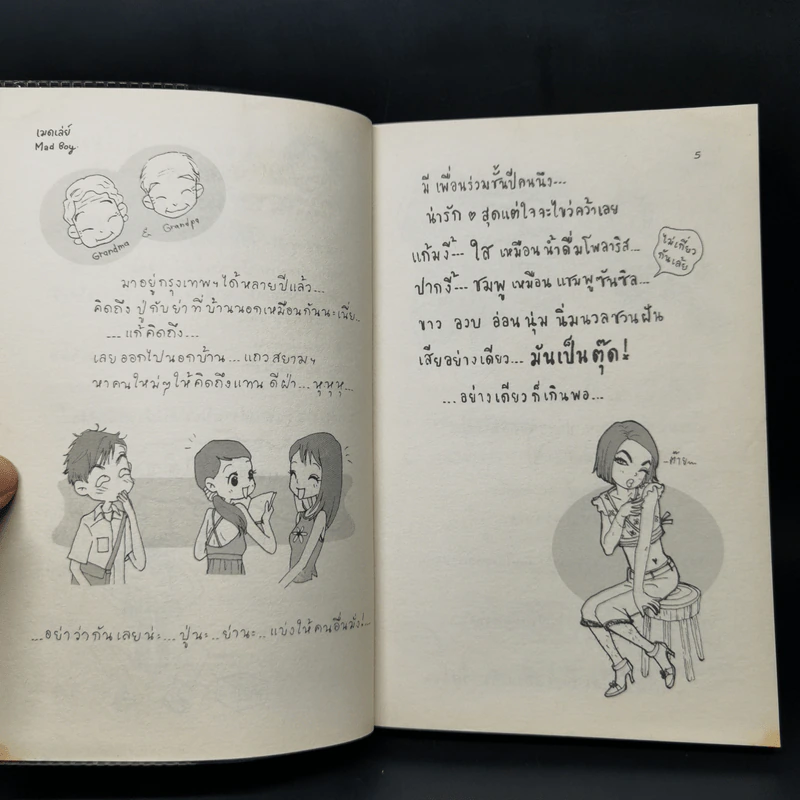 เมดเล่ย์
Mad Boy.
Grandma & Grandpa
มาอยู่กรุงเทพฯได้หลายปีแล้ว...
คิดถึง ปู่กับย่าที่บ้านนอกเหมือนกันนะเนี่ย...
...แก้คิดถึง...
เลยออกไปนอกบ้าน...แถวสยามฯ
หาคนใหม่ๆให้คิดถึงแทน ดีฝ่า...หุหุหุ...
...อย่าว่ากันเลยน่ะ...ปู่นะ..ย่านะ..แบ่งให้คนอื่นมั่ง!...
5
มี เพื่อนร่วมชั้นปีคนนึง...
น่ารัก ๓ สุดแต่ใจจะไขว่คว้าเลย
แก้มงี้... ใส เหมือน น้ำดื่มโพลาริส...
ไม่เกี่ยว
กันเล้ย
ปากงี้... ชมพู เหมือน แชมพูซันซิล...
ขาว อวบ อ่อน นุ่ม นิ่มนวลชวนฝัน
เสียอย่างเดียว... มันเป็นตุ๊ด!
...อย่างเดียว ก็เกินพอ...